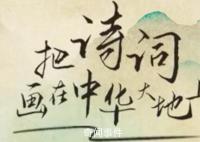 把诗词
画在中华大地上
奇闻事件